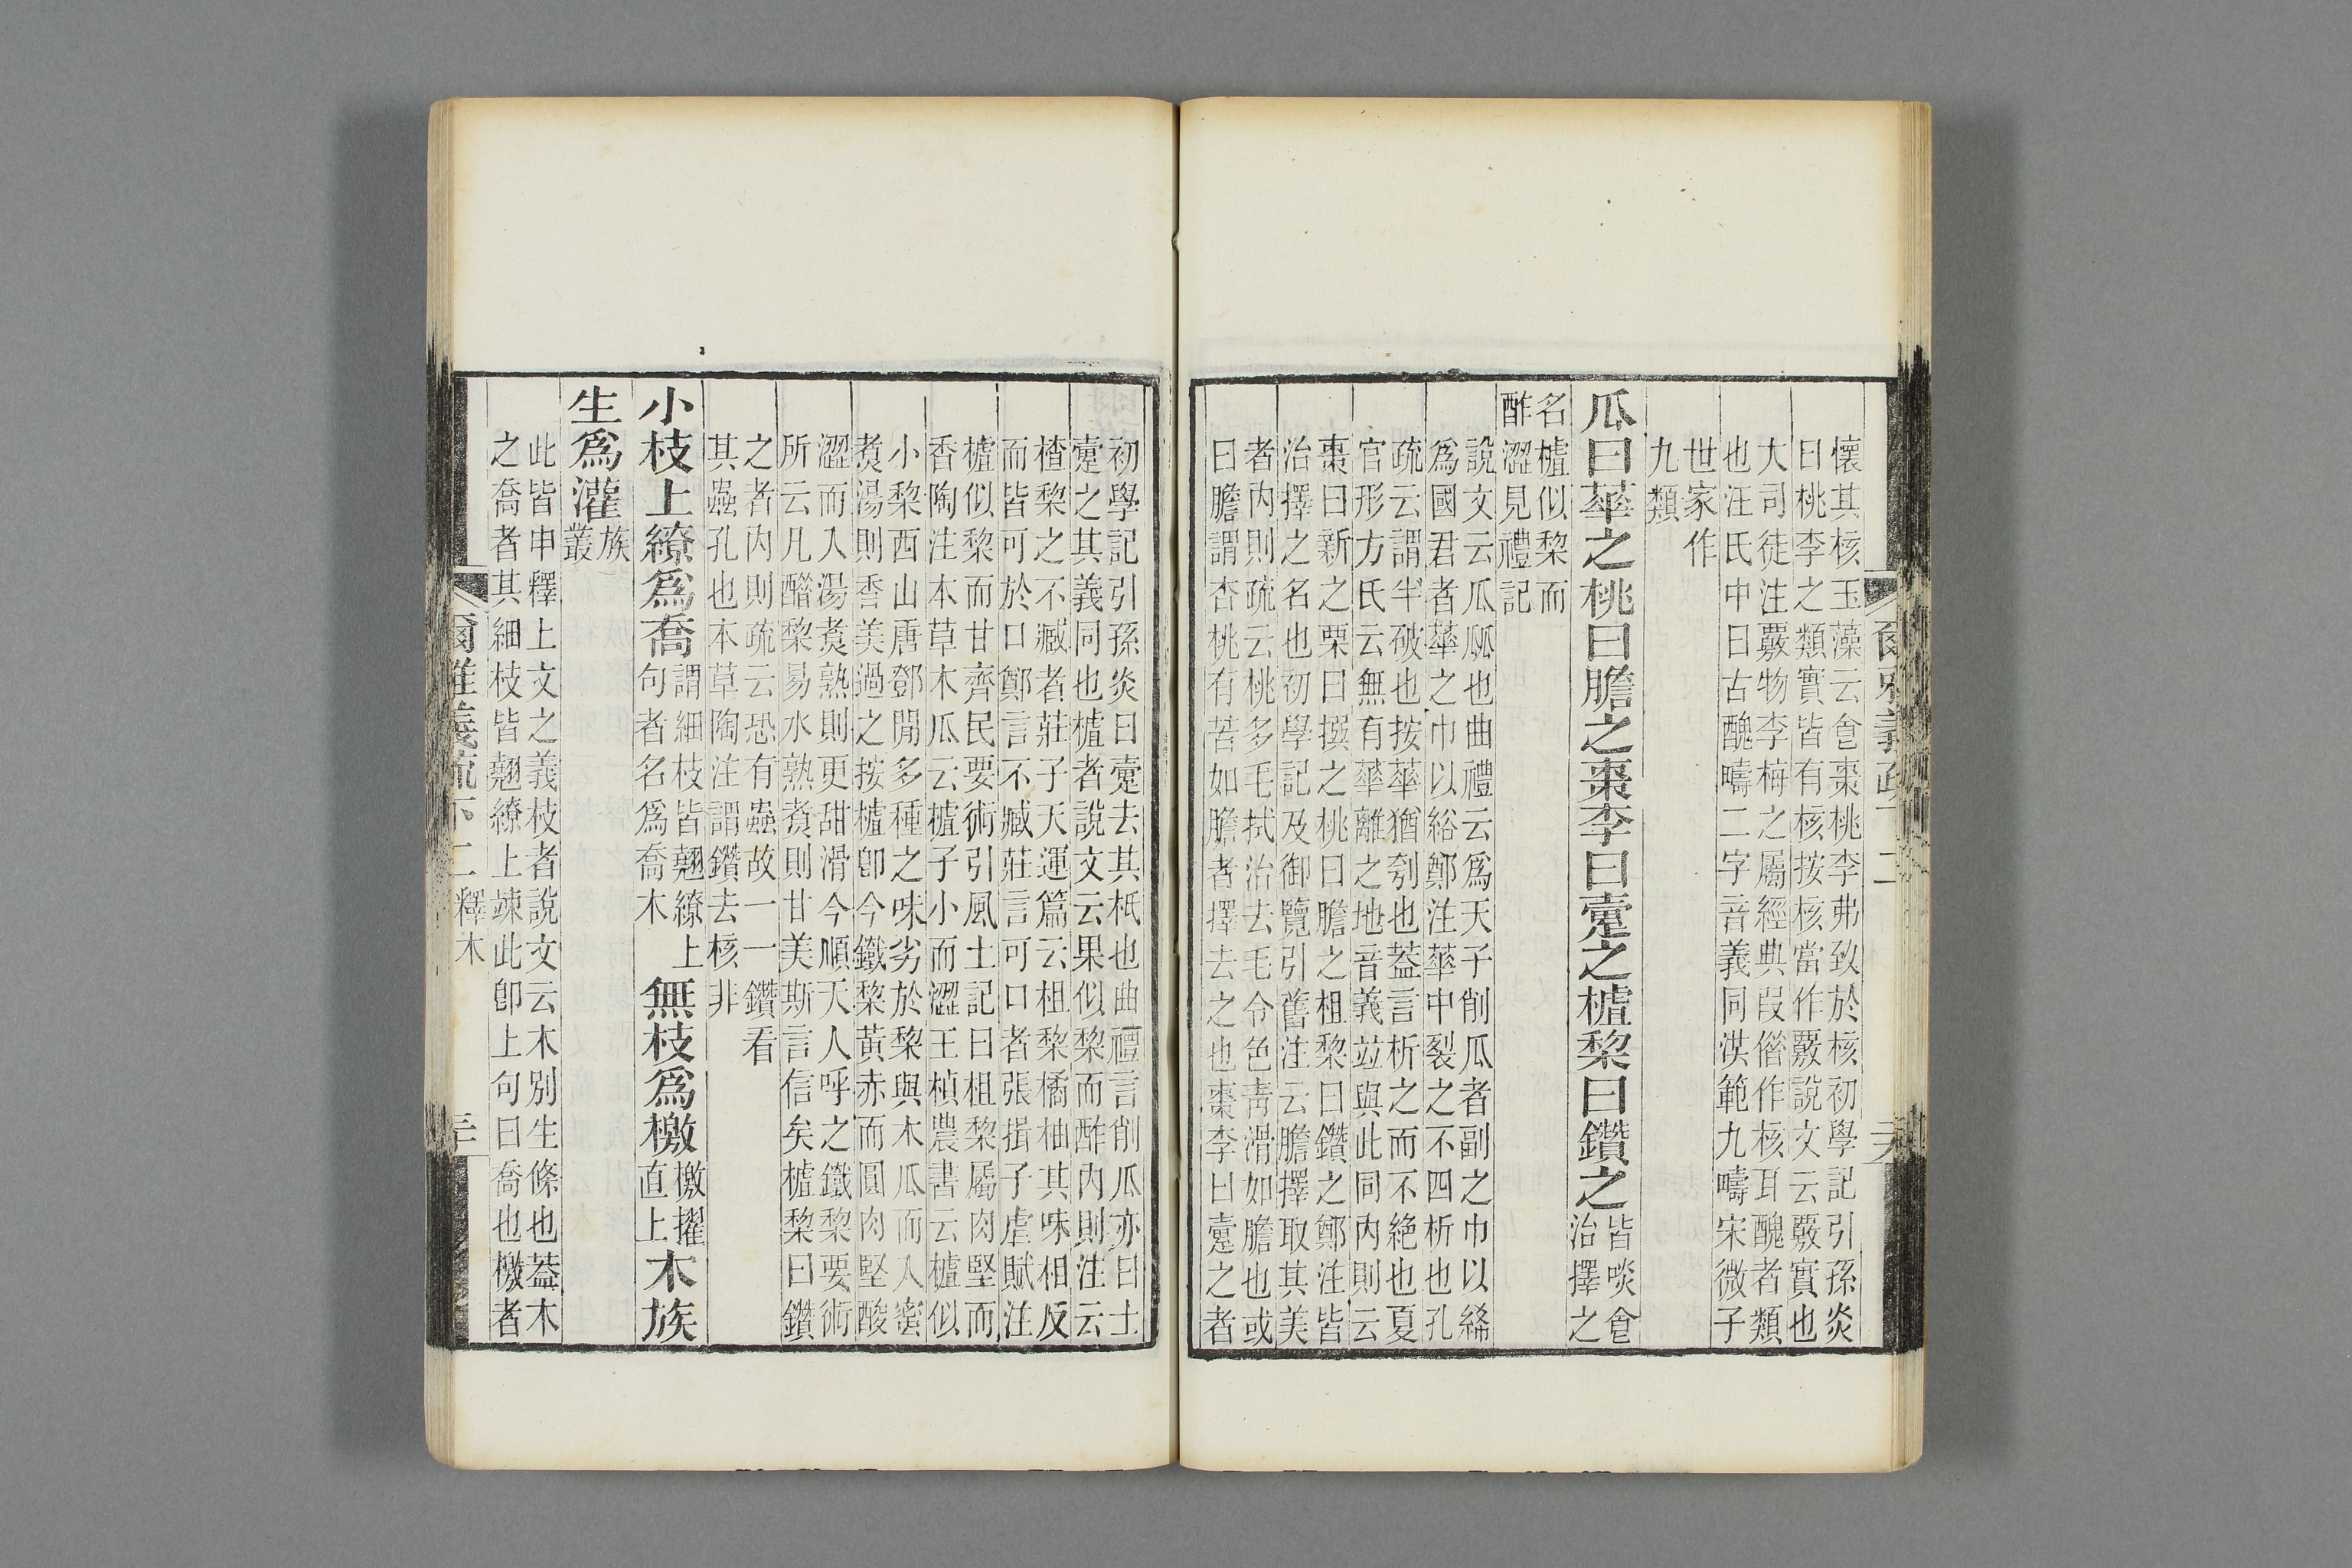 懷其核玉藻云食棗桃李弗致於核初學記引孫炎
曰桃李之類實皆有核按核當作覈說文云覈實也
大司徒注覈物李梅之屬經典叚借作核耳醜者類
也汪氏中曰古醜疇二字音義同洪範九疇宋微子
世家作
九類
瓜曰華之桃曰膽之棗李曰疐之樝棃曰鑽之
皆啖食
治擇之
名樝似棃而
酢澀見禮記
說文云瓜㼌也曲禮云爲天子削瓜者副之巾以絺
爲國君者華之巾以綌鄭注華中裂之不四析也孔
疏云謂半破也按華猶刳也葢言析之而不絶也夏
官形方氏云無有華離之地音義竝與此同內則云
棗曰新之栗曰撰之桃曰膽之柤棃曰鑽之鄭注皆
治擇之名也初學記及御覽引舊注云膽擇取其美
者內則疏云桃多毛拭治去毛令色靑滑如膽也或
曰膽謂杏桃有苦如膽者擇去之也棗李曰疐之者
初學記引孫炎曰疐去其柢也曲禮言削瓜亦曰士
疐之其義同也樝者說文云果似棃而酢內則注云
楂棃之不臧者莊子天運篇云柤棃橘柚其味相反
而皆可於口鄭言不臧莊言可口者張揖子虛賦注
樝似棃而甘齊民要術引風土記曰柤棃屬肉堅而
香陶注本草木瓜云樝子小而澀王楨農書云樝似
小棃西山唐鄧閒多種之味劣於棃與木瓜而入蜜
煑湯則香美過之按樝卽今鐵棃黃赤而圓肉堅酸
澀而入湯煑熟則更甜滑今順天人呼之鐵棃要術
所云凡醦棃易水熟煑則甘美斯言信矣樝棃曰鑽
之者內則疏云恐有蟲故一一鑽看
其蟲孔也本草陶注謂鑽去核非
小枝上繚爲喬
謂細枝皆翹繚上
句者名爲喬木
無枝爲檄
檄擢
直上
木族
生爲灌
族
叢
此皆申釋上文之義枝者說文云木別生條也葢木
之喬者其細枝皆翹繚上竦此卽上句曰喬也檄者
爾雅義疏下二釋木